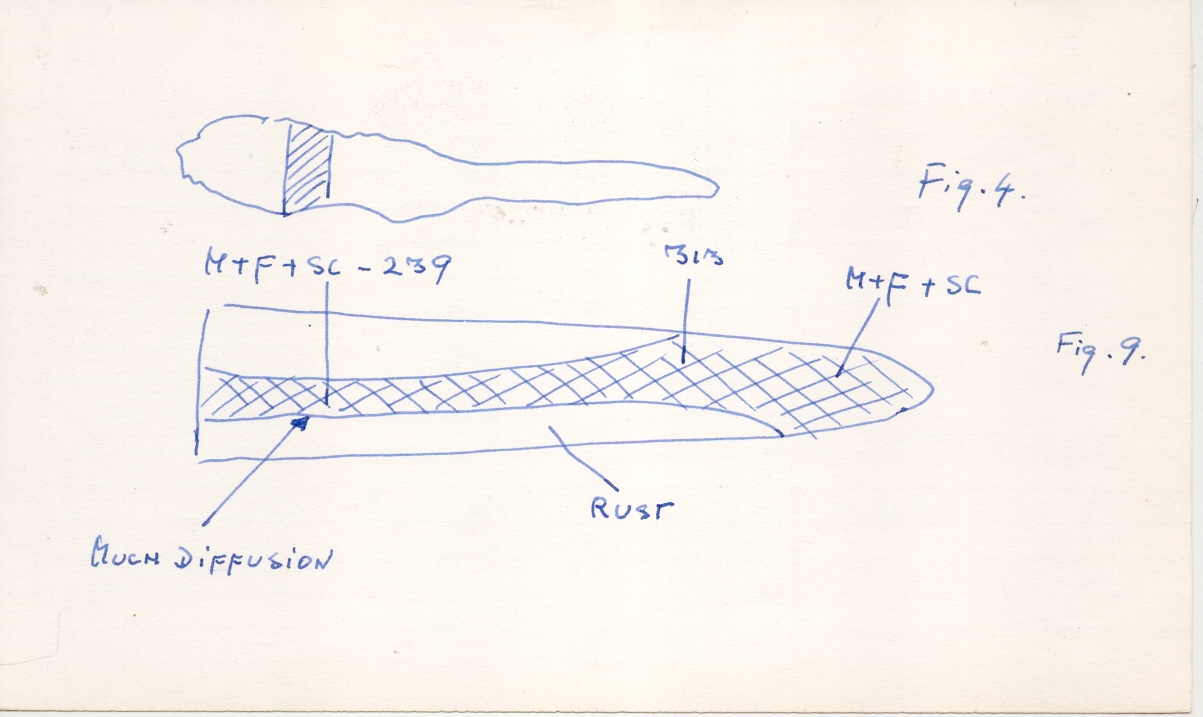 Fig. 4.
M+F+SC - 239
313
M+F+SC
Fig. 9.
RUST
MUCH DiFFUSiON